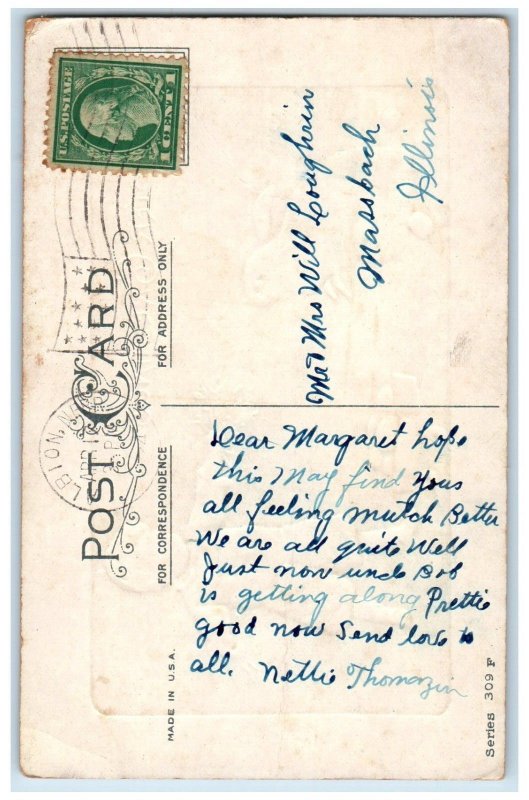 U.S. POSTAGE
1 CENT 1
ALBION, N
APR
POST CARD
FOR ADDRESS ONLY
Mr & Mrs Will Loughrin
Massbach
Illinois
FOR CORRESPONDENCE
Dear Margaret hope
this May find yous
all feeling mutch Better
We are all quite Well
Just now uncle Bob
is getting along Prettie
good now Send love to
all. Nettie Thomazin
MADE IN U.S.A.
Series 309 F